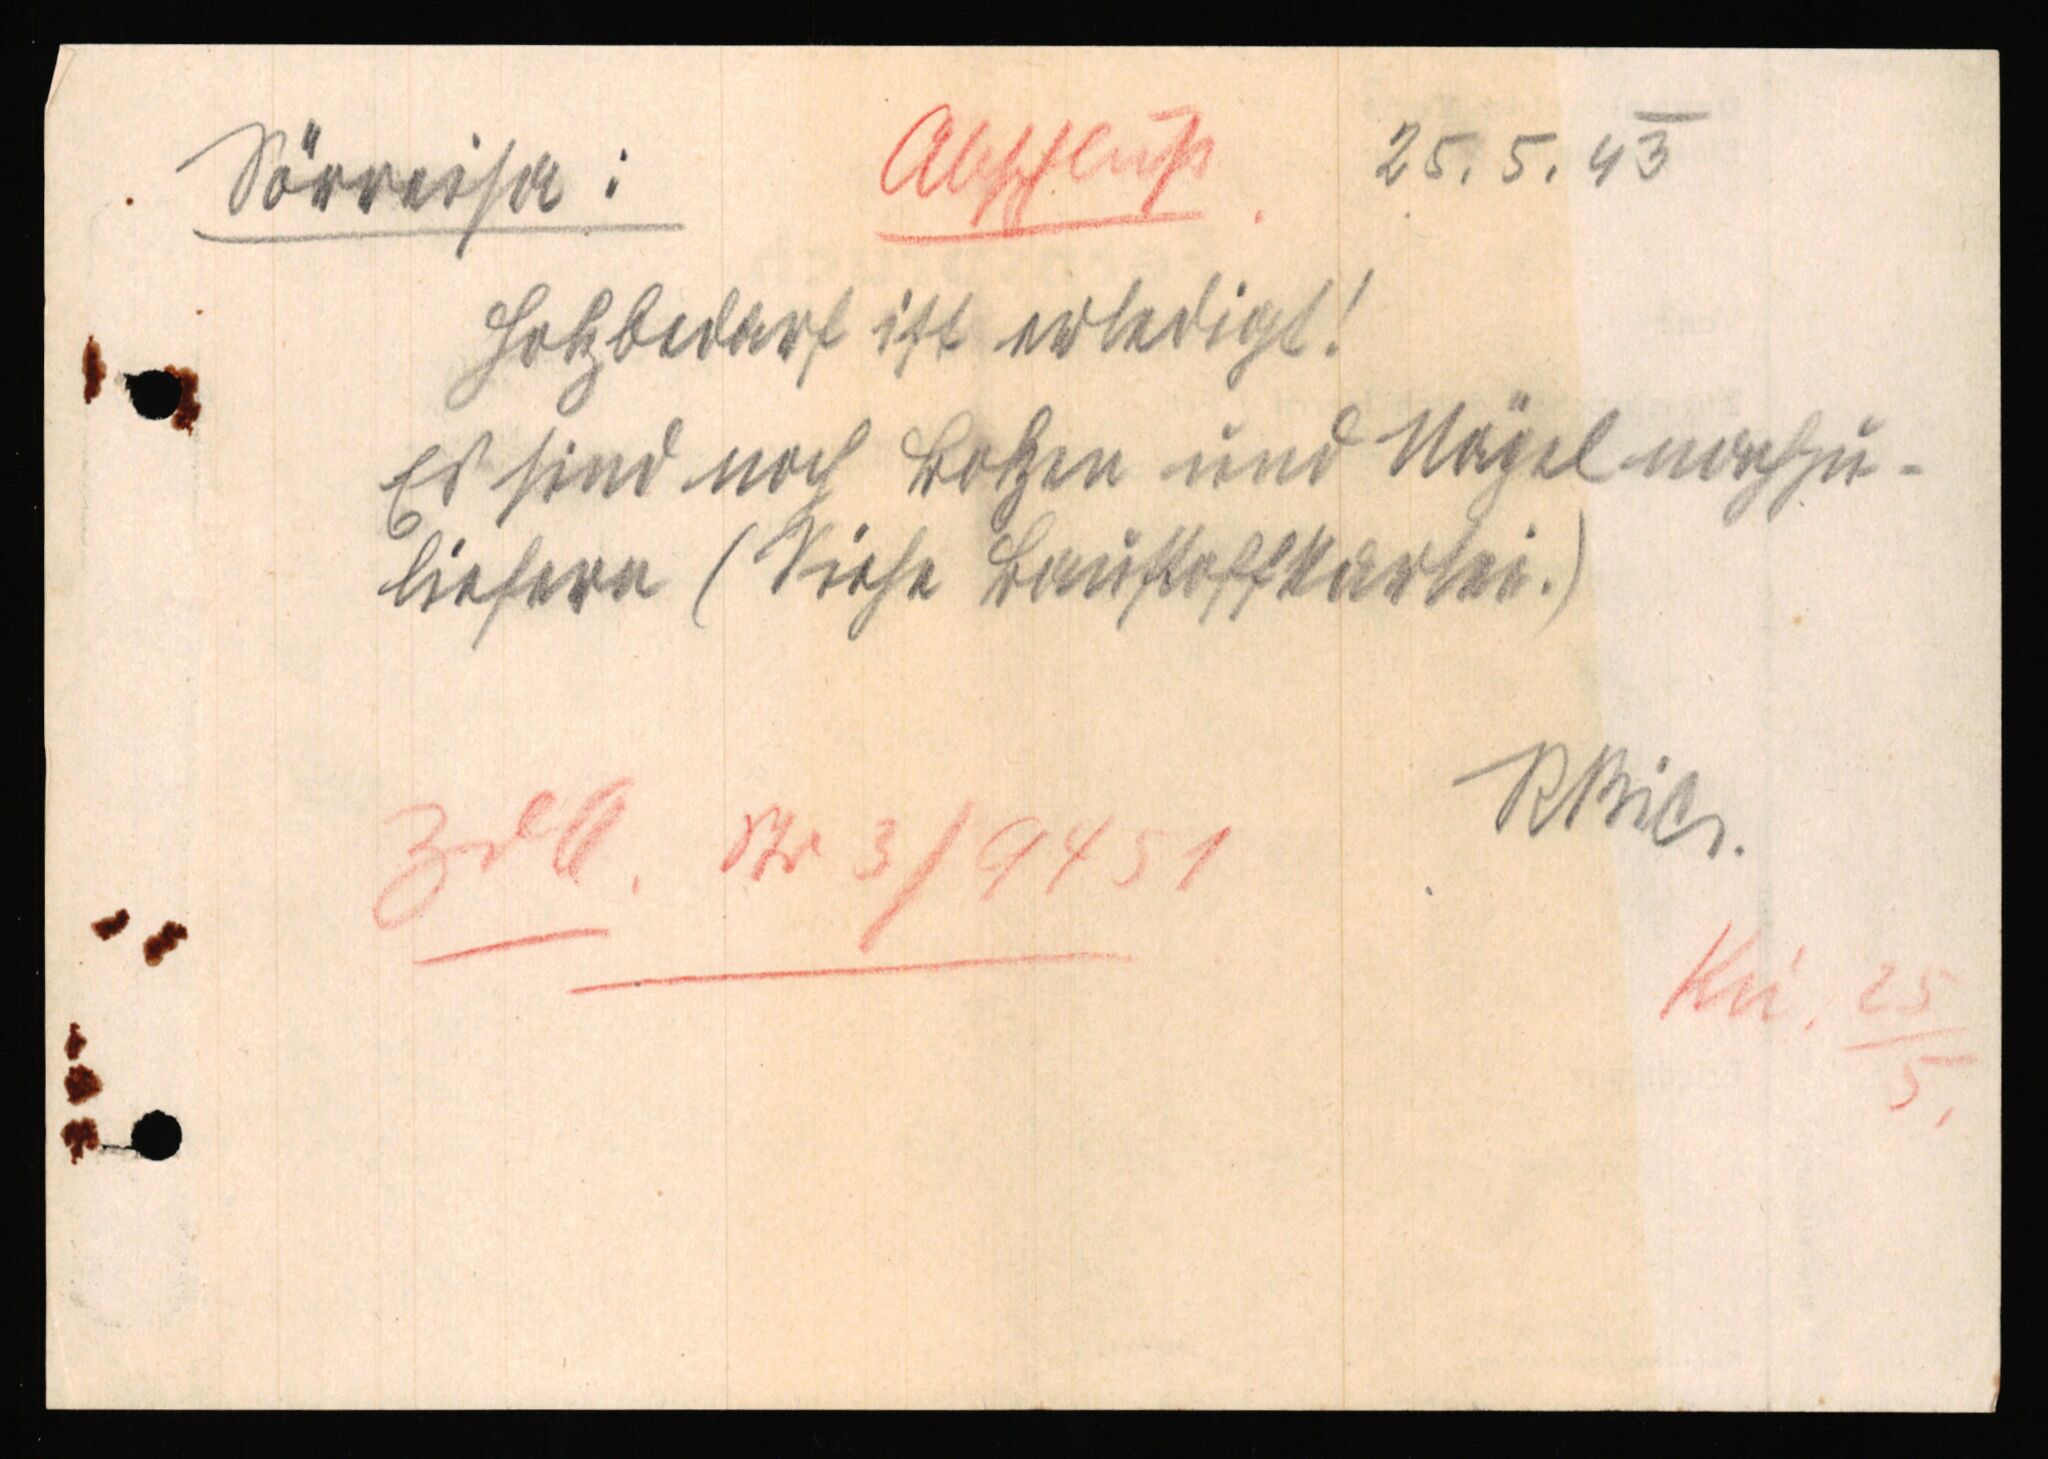 Sörreisa: Abschluß. 25.5.43
Holzbedarf ist erledigt!
Es sind noch Bolzen und Nägel nachzu-
liefern (Siehe Baustoffkartei.)
Zdll. Str 3/9451
Kü. 25/5.